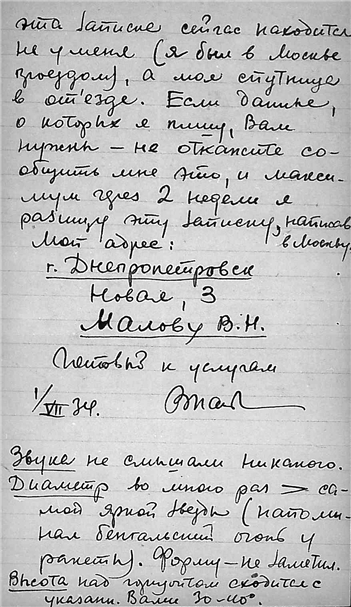 эта записка сейчас находится
не у меня (я был в Москве
проездом), а моя спутница
в от'езде. Если данные,
о которых я пишу, Вам
нужны – не откажите со-
общить мне это, и макси-
мум через 2 недели я
разыщу эту записку, написав
в Москву.
Мой адрес:
г. Днепропетровск
Новая, 3
Малову В.Н.
Готовый к услугам
1/VII 34.
Звука не слышали никакого.
Диаметр во много раз > са-
мой яркой звезды (напоми-
нал бенгальский огонь у
ракеты). Форму – не заметил.
Высота над горизонтом сходится с
указанн. Вами 30-40°.